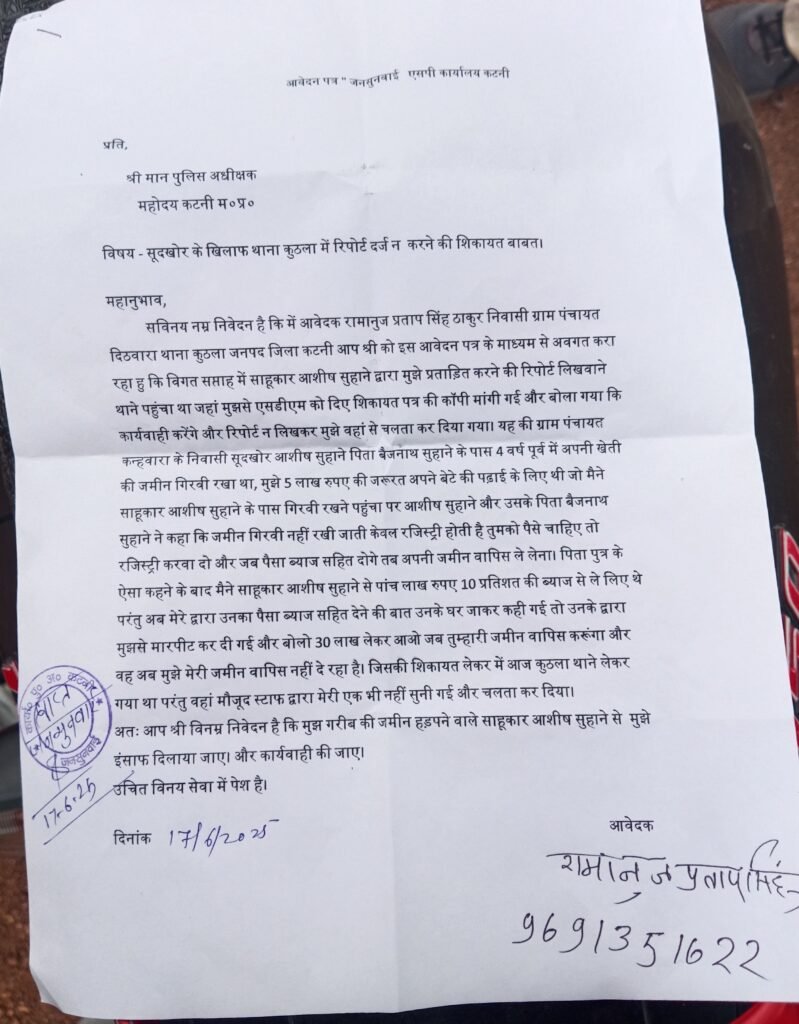 आवेदन पत्र " जनसुनवाई एसपी कार्यालय कटनी
प्रति,
श्री मान पुलिस अधीक्षक
महोदय कटनी म०प्र०
विषय - सूदखोर के खिलाफ थाना कुठला में रिपोर्ट दर्ज न करने की शिकायत बाबत।
महानुभाव,
सविनय नम्र निवेदन है कि में आवेदक रामानुज प्रताप सिंह ठाकुर निवासी ग्राम पंचायत
दिठवारा थाना कुठला जनपद जिला कटनी आप श्री को इस आवेदन पत्र के माध्यम से अवगत करा
रहा हु कि विगत सप्ताह में साहूकार आशीष सुहाने द्वारा मुझे प्रताड़ित करने की रिपोर्ट लिखवाने
थाने पहुंचा था जहां मुझसे एसडीएम को दिए शिकायत पत्र की कॉपी मांगी गई और बोला गया कि
कार्यवाही करेंगे और रिपोर्ट न लिखकर मुझे वहां से चलता कर दिया गया। यह की ग्राम पंचायत
कन्हवारा के निवासी सूदखोर आशीष सुहाने पिता बैजनाथ सुहाने के पास 4 वर्ष पूर्व में अपनी खेती
की जमीन गिरवी रखा था, मुझे 5 लाख रुपए की जरूरत अपने बेटे की पढ़ाई के लिए थी जो मैने
साहूकार आशीष सुहाने के पास गिरवी रखने पहुंचा पर आशीष सुहाने और उसके पिता बैजनाथ
सुहाने ने कहा कि जमीन गिरवी नहीं रखी जाती केवल रजिस्ट्री होती है तुमको पैसे चाहिए तो
रजिस्ट्री करवा दो और जब पैसा ब्याज सहित दोगे तब अपनी जमीन वापिस ले लेना। पिता पुत्र के
ऐसा कहने के बाद मैने साहूकार आशीष सुहाने से पांच लाख रुपए 10 प्रतिशत की ब्याज से ले लिए थे
परंतु अब मेरे द्वारा उनका पैसा ब्याज सहित देने की बात उनके घर जाकर कही गई तो उनके द्वारा
मुझसे मारपीट कर दी गई और बोलो 30 लाख लेकर आओ जब तुम्हारी जमीन वापिस करूंगा और
वह अब मुझे मेरी जमीन वापिस नहीं दे रहा है। जिसकी शिकायत लेकर में आज कुठला थाने लेकर
गया था परंतु वहां मौजूद स्टाफ द्वारा मेरी एक भी नहीं सुनी गई और चलता कर दिया।
अतः आप श्री विनम्र निवेदन है कि मुझ गरीब की जमीन हड़पने वाले साहूकार आशीष सुहाने से मुझे
इंसाफ दिलाया जाए। और कार्यवाही की जाए।
उचित विनय सेवा में पेश है।
जनसुनवाई
17-6-25
दिनांक 17/6/2025
आवेदक
रामानुज प्रताप सिंह
9691351622